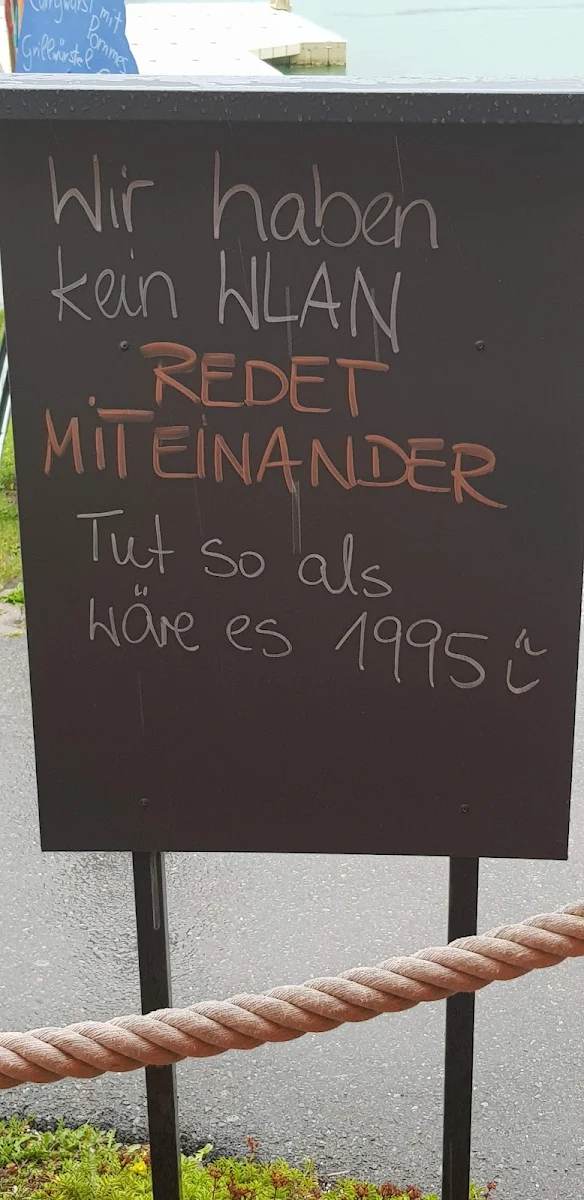 Currywurst mit
Pommes
Grillwürstel
Wir haben
kein WLAN
REDET
MiTEiNANDER
Tut so als
wäre es 1995